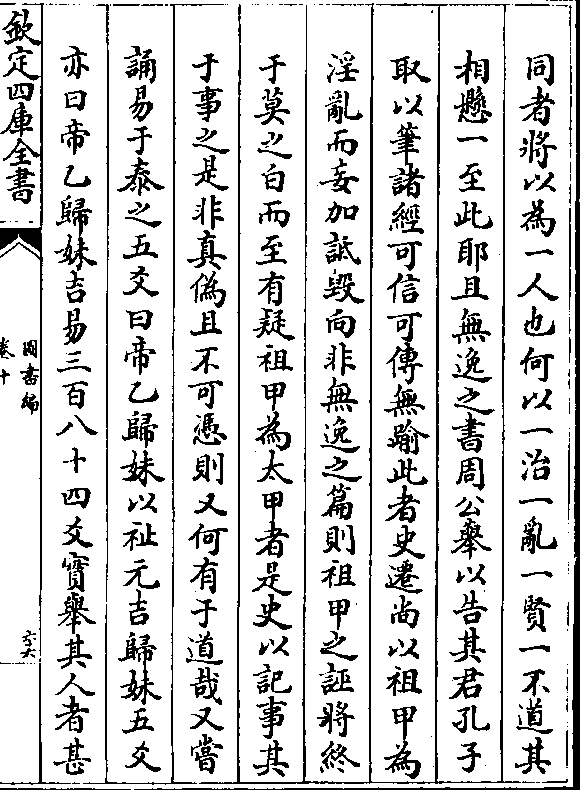 同者將以為一人也何以一治一亂一賢一不道其
相懸一至此耶且無逸之書周公舉以告其君孔子
取以筆諸經可信可傳無踰此者史遷尚以祖甲為
淫亂而妄加詆毀向非無逸之篇則祖甲之誣將終
于莫之白而至有疑祖甲為太甲者是史以記事其
于事之是非真偽且不可憑則又何有于道哉又嘗
誦易于泰之五爻曰帝乙歸妹以祉元吉歸妹五爻
亦曰帝乙歸妹吉易三百八十四爻實舉其人者甚
欽定四庫全書
圖書編
卷十
六六